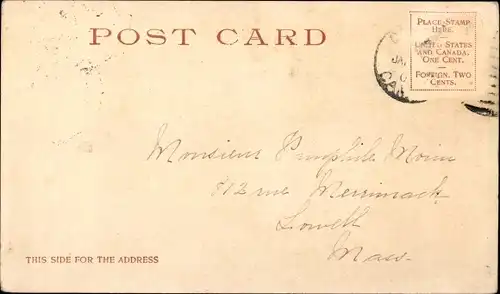 POST CARD
PLACE STAMP
HERE.
UNITED STATES
AND CANADA,
ONE CENT.
FOREIGN, TWO
CENTS.
JA
CAN
Monsieur Pamphile Morin
812 rue Merrimack
Lowell
Mass.
THIS SIDE FOR THE ADDRESS